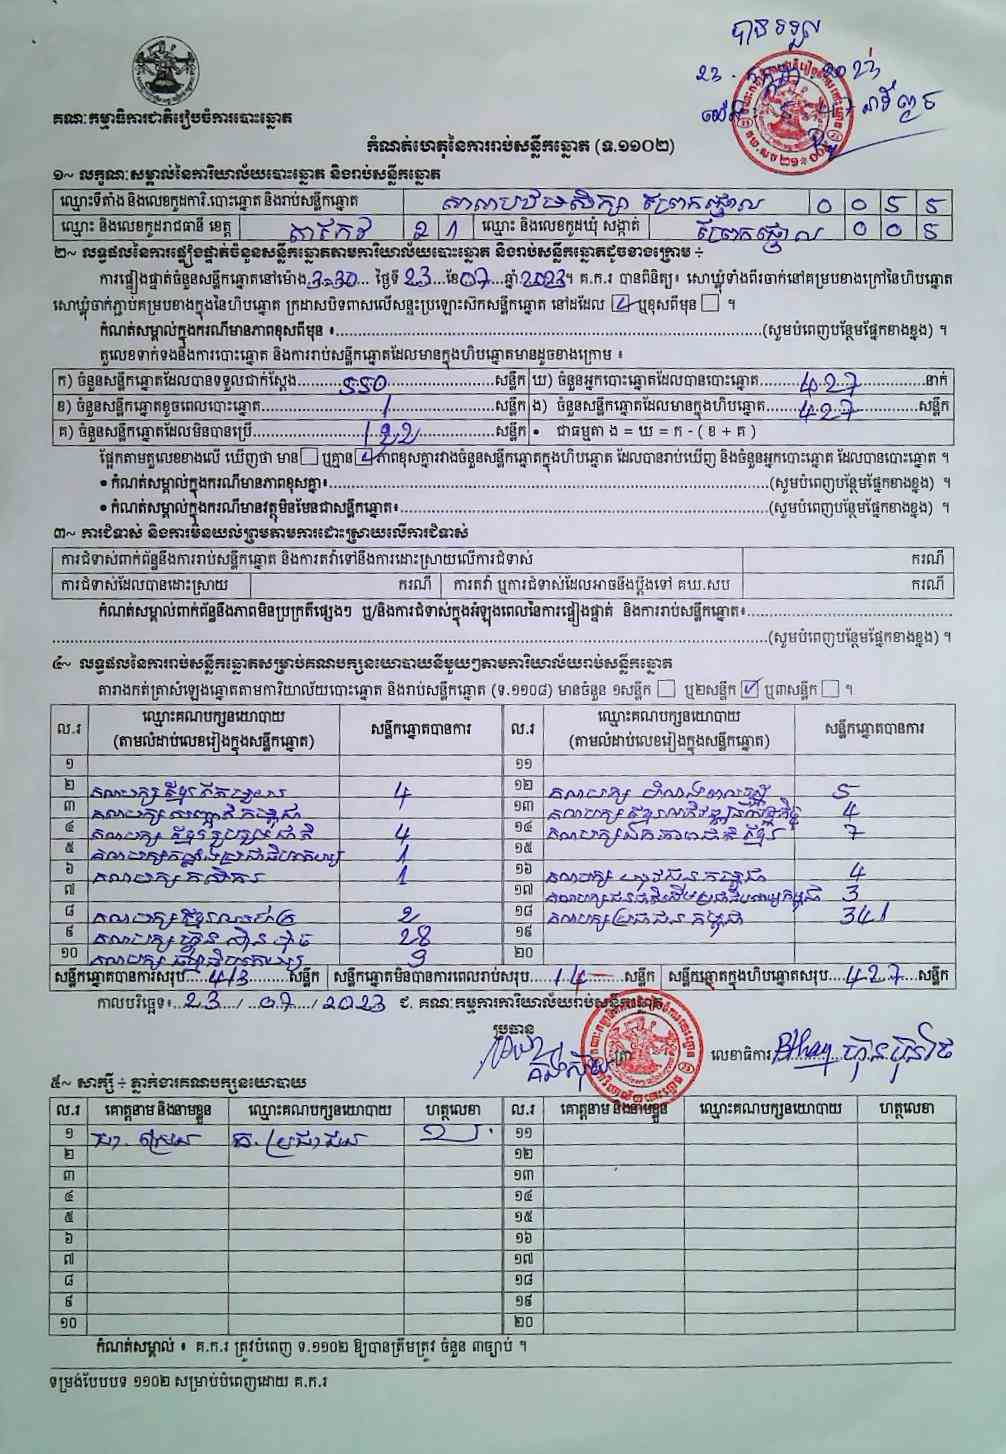 បានទទួល
23 . កក្កដា 2023
គណៈកម្មាធិការជាតិរៀបចំការបោះឆ្នោត
កំណត់ហេតុនៃការរាប់សន្លឹកឆ្នោត (ទ.១១០២)
១~ លក្ខណៈសម្គាល់នៃការិយាល័យបោះឆ្នោត និងរាប់សន្លឹកឆ្នោត
ឈ្មោះទីតាំង និងលេខកូដការិ.បោះឆ្នោត និងរាប់សន្លឹកឆ្នោត សាលាបឋមសិក្សា ព្រែកផ្ទោល 0 0 5 5
ឈ្មោះ និងលេខកូដរាជធានី ខេត្ត តាកែវ 2 1 ឈ្មោះ និងលេខកូដឃុំ សង្កាត់ ព្រែកផ្ទោល 0 0 5
២~ លទ្ធផលនៃការផ្ទៀងផ្ទាត់ចំនួនសន្លឹកឆ្នោតតាមការិយាល័យបោះឆ្នោត និងរាប់សន្លឹកឆ្នោតដូចខាងក្រោម ÷
ការផ្ទៀងផ្ទាត់ចំនួនសន្លឹកឆ្នោតនៅម៉ោង 3:30 ថ្ងៃទី 23 ខែ 07 ឆ្នាំ 2023 ។ គ.ក.រ បានពិនិត្យ៖ សោឃ្លុំទាំងពីរចាក់នៅគម្របខាងក្រៅនៃហិបឆ្នោត
សោឃ្លុំចាក់ភ្ជាប់គម្របខាងក្នុងនៃហិបឆ្នោត ក្រដាសបិទពាសលើសន្ទះប្រឡោះស៊កសន្លឹកឆ្នោត នៅដដែល ☑ ឬខុសពីមុន ☐ ។
កំណត់សម្គាល់ក្នុងករណីមានភាពខុសពីមុន ៖ (សូមបំពេញបន្ថែមផ្នែកខាងខ្នង) ។
តួលេខទាក់ទងនឹងការបោះឆ្នោត និងការរាប់សន្លឹកឆ្នោតដែលមានក្នុងហិបឆ្នោតមានដូចខាងក្រោម ៖
ក) ចំនួនសន្លឹកឆ្នោតដែលបានទទួលជាក់ស្តែង 550 សន្លឹក ឃ) ចំនួនអ្នកបោះឆ្នោតដែលបានបោះឆ្នោត 427 នាក់
ខ) ចំនួនសន្លឹកឆ្នោតខូចពេលបោះឆ្នោត 1 សន្លឹក ង) ចំនួនសន្លឹកឆ្នោតដែលមានក្នុងហិបឆ្នោត 427 សន្លឹក
គ) ចំនួនសន្លឹកឆ្នោតដែលមិនបានប្រើ 122 សន្លឹក • ជាធម្មតា ង = ឃ = ក - ( ខ + គ )
ផ្អែកតាមតួលេខខាងលើ ឃើញថា មាន ☐ ឬគ្មាន ☑ ភាពខុសគ្នារវាងចំនួនសន្លឹកឆ្នោតក្នុងហិបឆ្នោត ដែលបានរាប់ឃើញ និងចំនួនអ្នកបោះឆ្នោត ដែលបានបោះឆ្នោត ។
• កំណត់សម្គាល់ក្នុងករណីមានភាពខុសគ្នា៖ (សូមបំពេញបន្ថែមផ្នែកខាងខ្នង) ។
• កំណត់សម្គាល់ក្នុងករណីមានវត្ថុមិនមែនជាសន្លឹកឆ្នោត៖ (សូមបំពេញបន្ថែមផ្នែកខាងខ្នង) ។
៣~ ការជំទាស់ និងការមិនយល់ព្រមតាមការដោះស្រាយលើការជំទាស់
ការជំទាស់ពាក់ព័ន្ធនឹងការរាប់សន្លឹកឆ្នោត និងការតវ៉ាទៅនឹងការដោះស្រាយលើការជំទាស់ ករណី
ការជំទាស់ដែលបានដោះស្រាយ ករណី ការតវ៉ា ឬការជំទាស់ដែលអាចនឹងប្តឹងទៅ គឃ.សប ករណី
កំណត់សម្គាល់ពាក់ព័ន្ធនឹងភាពមិនប្រក្រតីផ្សេងៗ ឬ/និងការជំទាស់ក្នុងអំឡុងពេលនៃការផ្ទៀងផ្ទាត់ និងការរាប់សន្លឹកឆ្នោត៖
(សូមបំពេញបន្ថែមផ្នែកខាងខ្នង) ។
៤~ លទ្ធផលនៃការរាប់សន្លឹកឆ្នោតសម្រាប់គណបក្សនយោបាយនីមួយៗតាមការិយាល័យរាប់សន្លឹកឆ្នោត
តារាងកត់ត្រាសំឡេងឆ្នោតតាមការិយាល័យបោះឆ្នោត និងរាប់សន្លឹកឆ្នោត (ទ.១១០៨) មានចំនួន ១សន្លឹក ☐ ឬ២សន្លឹក ☑ ឬ៣សន្លឹក ☐ ។
ល.រ ឈ្មោះគណបក្សនយោបាយ (តាមលំដាប់លេខរៀងក្នុងសន្លឹកឆ្នោត) សន្លឹកឆ្នោតបានការ ល.រ ឈ្មោះគណបក្សនយោបាយ (តាមលំដាប់លេខរៀងក្នុងសន្លឹកឆ្នោត) សន្លឹកឆ្នោតបានការ
១ ១១
២ 4 ១២ 5
៣ ១៣ 4
៤ គណបក្ស ខ្មែររួបរួមជាតិ 4 ១៤ 7
៥ គណបក្សកម្លាំងប្រជាធិបតេយ្យ 1 ១៥
៦ គណបក្ស កសិករ 1 ១៦ គណបក្ស យុវជនកម្ពុជា 4
៧ ១៧ 3
៨ 2 ១៨ គណបក្សប្រជាជន កម្ពុជា 341
៩ គណបក្ស ហ៊្វុនស៊ិនប៉ិច 28 ១៩
១០ គណបក្ស ធម្មាធិបតេយ្យ 9 ២០
សន្លឹកឆ្នោតបានការសរុប 413 សន្លឹក សន្លឹកឆ្នោតមិនបានការពេលរាប់សរុប 14 សន្លឹក សន្លឹកឆ្នោតក្នុងហិបឆ្នោតសរុប 427 សន្លឹក
កាលបរិច្ឆេទ៖ 23 / 07 / 2023 ជ. គណៈកម្មការការិយាល័យរាប់សន្លឹកឆ្នោត
ប្រធាន លេខាធិការ
៥~ សាក្សី ÷ ភ្នាក់ងារគណបក្សនយោបាយ
ល.រ គោត្តនាម និងនាមខ្លួន ឈ្មោះគណបក្សនយោបាយ ហត្ថលេខា ល.រ គោត្តនាម និងនាមខ្លួន ឈ្មោះគណបក្សនយោបាយ ហត្ថលេខា
១ គ. ប្រជាជន ១១
២ ១២
៣ ១៣
៤ ១៤
៥ ១៥
៦ ១៦
៧ ១៧
៨ ១៨
៩ ១៩
១០ ២០
កំណត់សម្គាល់ ៖ គ.ក.រ ត្រូវបំពេញ ទ.១១០២ ឱ្យបានត្រឹមត្រូវ ចំនួន ៣ច្បាប់ ។
ទម្រង់បែបបទ ១១០២ សម្រាប់បំពេញដោយ គ.ក.រ